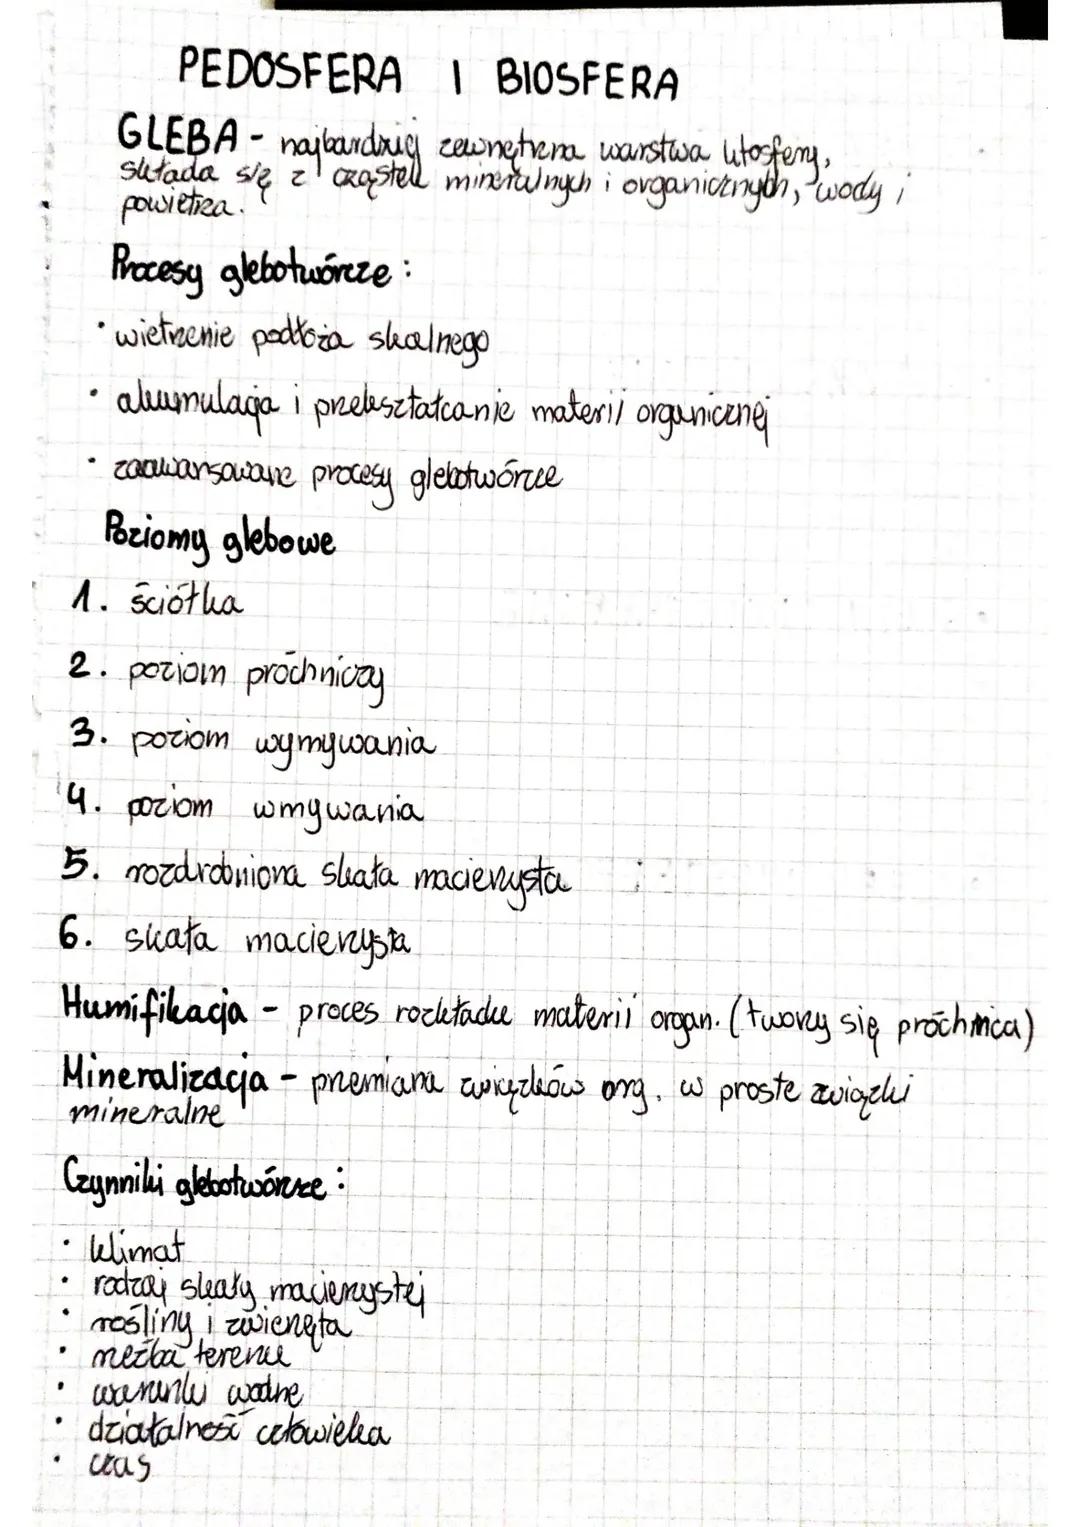 PEDOSFERA I BIOSFERA
GLEBA - najbardziej zewnętrzna warstwa litosfery,
składa się z cząstek mineralnych i organicznych, wody i
powietrza.
Procesy glebotwórcze :
• wietrzenie podłoża skalnego
• akumulacja i przekształcanie materii organicznej
• zaawansowane procesy glebotwórcze
Poziomy glebowe
1. ściółka
2. poziom próchniczy
3. poziom wymywania
4. poziom wmywania
5. rozdrobniona skała macierzysta
6. skała macierzysta
Humifikacja - proces rozkładu materii organ. (tworzy się próchnica)
Mineralizacja - przemiana związków org. w proste związki
mineralne
Czynniki glebotwórcze :
• klimat
• rodzaj skały macierzystej
• rośliny i zwierzęta
• rzeźba terenu
• warunki wodne
• działalność człowieka
• czas